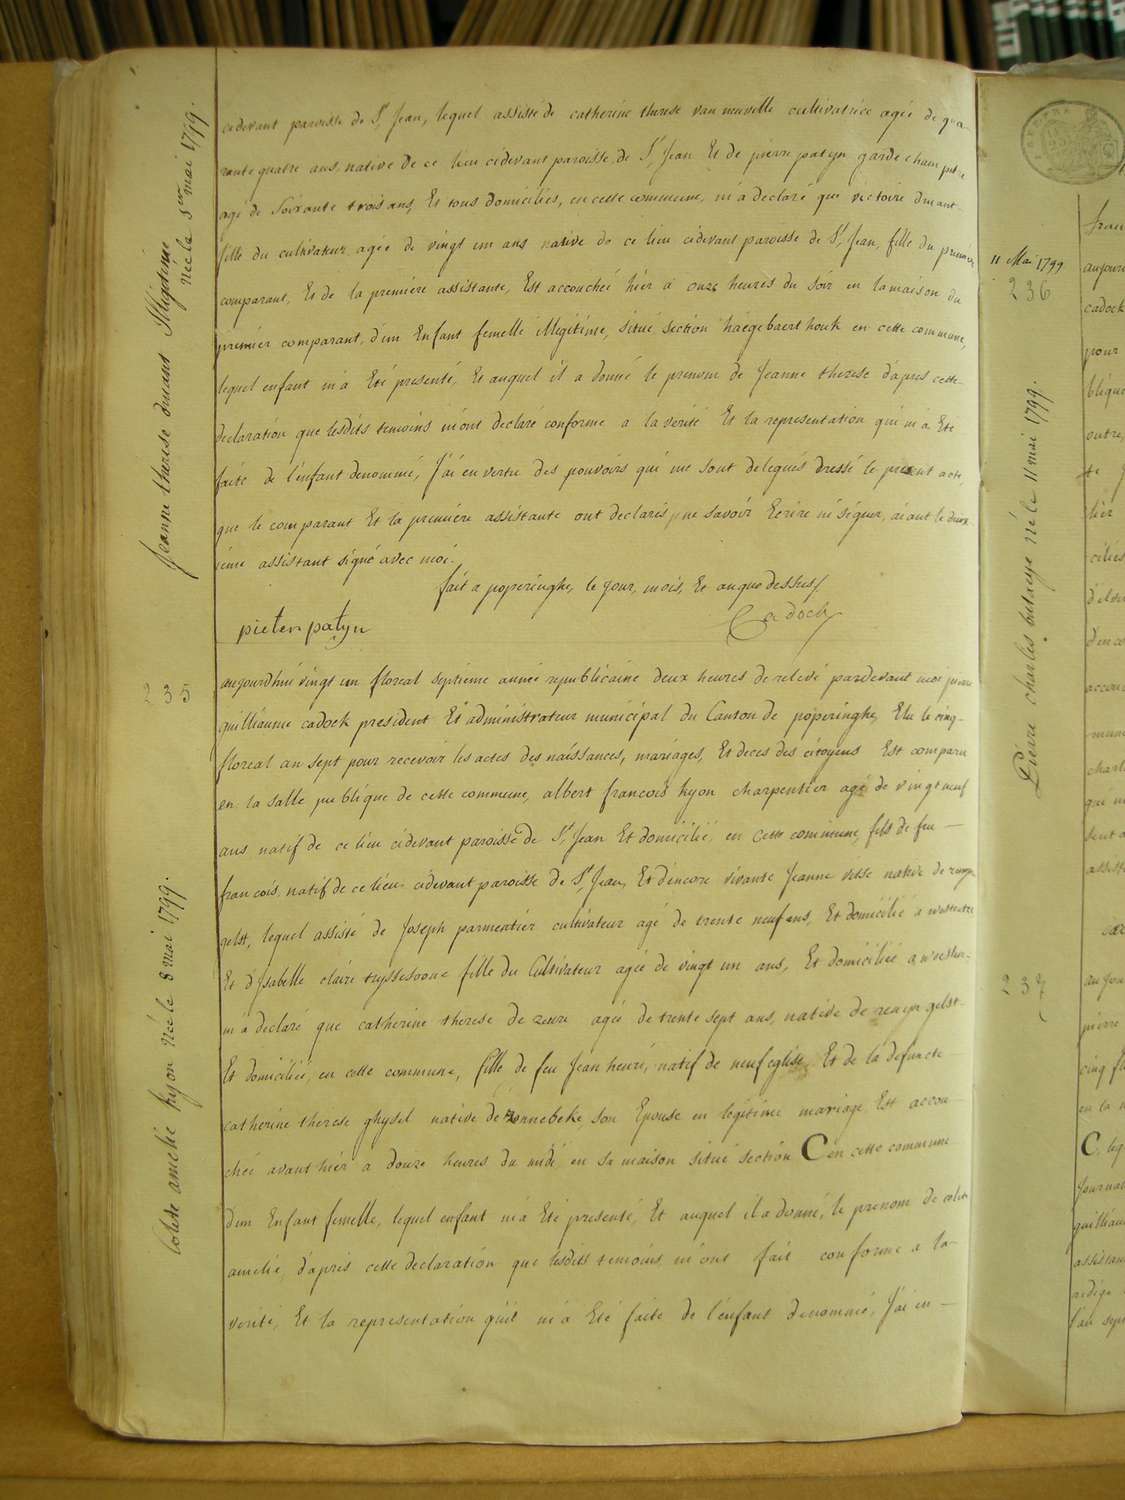 Jeanne therese druant Illegitime
née la 5em mai 1799.
cidevant paroisse de St Jean, lequel assisté de catherine therese van neuville cultivatrice agée de qua-
rante quatre ans, native de ce lieu cidevant paroisse de St Jean Et de pierre patyn garde champetre
agé de Soixante trois ans, Et tous domiciliés, en cette commune, m'a declaré que victoire druant-
fille du cultivateur agée de vingt un ans native de ce lieu cidevant paroisse de St Jean, fille du premier
comparant, Et de la premiere assistante, Est accouchée hier à onze heures du soir en la maison du
premier comparant, d'un Enfant femelle illegitime, situé section haegebaert houk en cette commune,
lequel enfant m'a Eté presenté, Et auquel il a donné le prenom de Jeanne therese d'apres cette-
declaration que lesdits temoins m'ont declaré conforme a la verité Et la representation qui m'a Eté
faite de l'enfant denommé, J'ai en vertu des pouvoirs qui me sont delegués dressé le present acte,
que le comparant Et la premiere assistante ont declarés ne savoir Ecrire ni signer, aiant le deux-
ieme assistant signé avec moi.
fait a poperinghe, le jour, mois, Et an que dessus/.
pieter patyn
Cadock
235
Colette amelie hyon Née le 8 mai 1799.
aujourdhui vingt un floreal septieme année republicaine deux heures de relevé pardevant moi pierre
guilliaume cadock president Et administrateur municipal du Canton de poperinghe, Elu le cinq-
floreal an sept pour recevoir les actes des naissances, mariages, Et deces des citoyens Est comparu
en la salle publique de cette commune, albert francois hyon charpentier agé de vingt neuf
ans natif de ce lieu cidevant paroisse de St Jean Et domicilié en cette commune, fils de feu —
francois natif de ce lieu cidevant paroisse de St Jean, Et d'encore vivante Jeanne visse native de
gelst, lequel assisté de Joseph parmentier cultivateur agé de trente neuf ans, Et domicilié a
Et d'ysabelle claire fille du Cultivateur agée de vingt un ans, Et domiciliée a
m'a declaré que catherine therese de zeure agée de trente sept ans, native de gelst-
Et domiciliée, en cette commune, fille de feu Jean henri, natif de neufeglise Et de la defuncte —
catherine therese ghysel native de zonnebeke, son Epouse en legitime mariage, Est accou-
chée avant hier a douze heures du midi en sa maison situé section C en cette commune
d'un Enfant femelle, lequel enfant m'a Eté presenté, Et auquel il a donné, le prenom de colette
amelie, d'apris cette declaration que lesdits temoins, m'ont fait conforme a la-
verité, Et la representation qu'il m'a Eté faite de l'enfant denommé, J'ai en —
11 Mai 1799
236
Pierre charles butaeye né le 11 mai 1799.
aujour
cadock
pour
blique
outre,
hier
237
aujour
pierre
cinq fl
en la
C, leq
Journa
guilliau
assistan
redigé
l'an sept